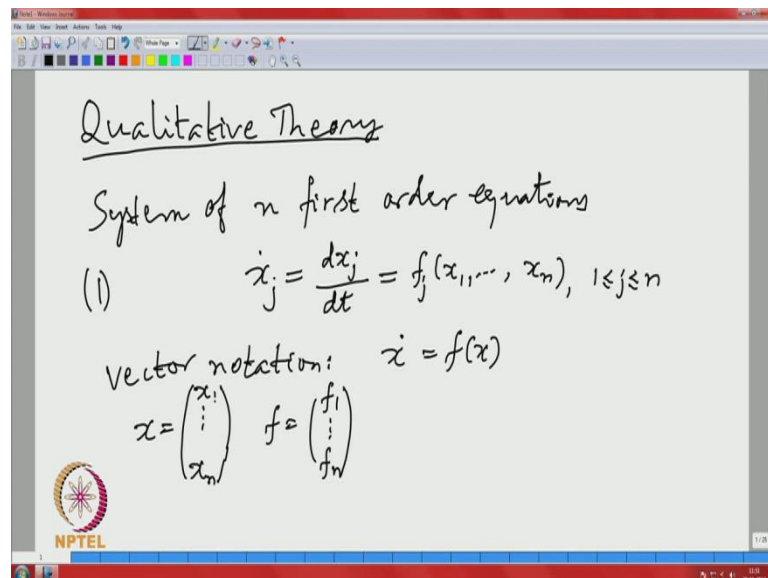 Note1 - Windows Journal
File Edit View Insert Actions Tools Help
Whole Page
B I
Qualitative Theory
System of n first order equations
(1) ẋ_j = dx_j/dt = f_j(x_1, ..., x_n), 1≤j≤n
vector notation: ẋ = f(x)
x = (x_1 ⋮ x_n) f = (f_1 ⋮ f_n)
NPTEL
1